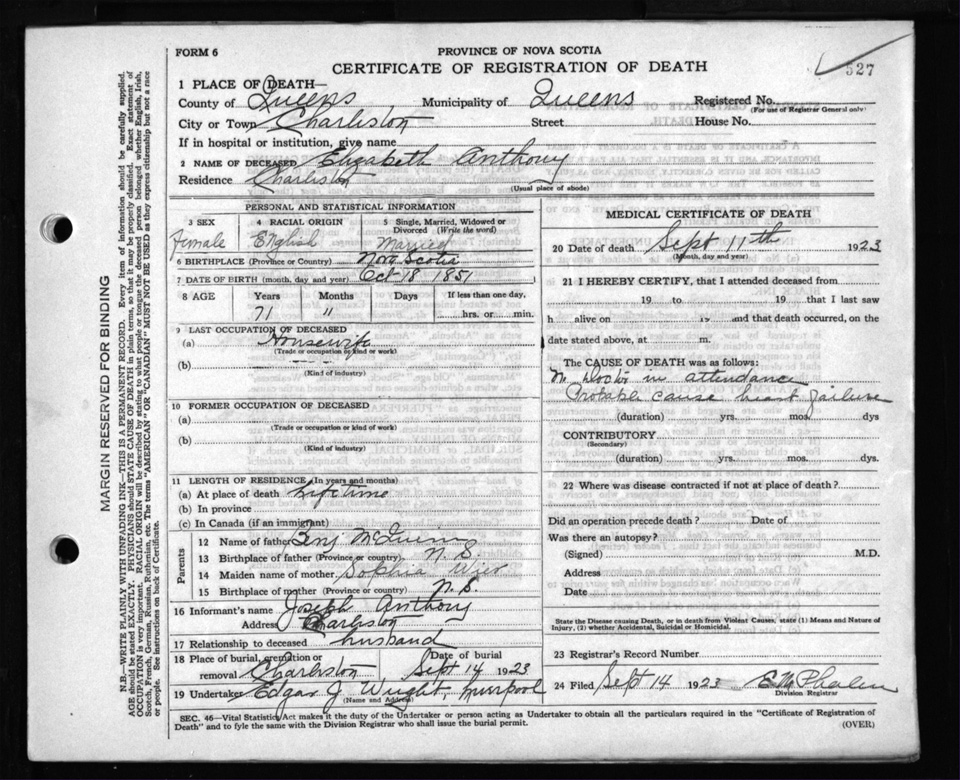 527
FORM 6
PROVINCE OF NOVA SCOTIA
CERTIFICATE OF REGISTRATION OF DEATH
1 PLACE OF DEATH—
County of Queens Municipality of Queens Registered No.
(For use of Registrar General only)
City or Town Charleston Street House No.
If in hospital or institution, give name
2 NAME OF DECEASED Elizabeth Anthony
Residence Charleston
(Usual place of abode)
PERSONAL AND STATISTICAL INFORMATION
3 SEX 4 RACIAL ORIGIN 5 Single, Married, Widowed or Divorced (Write the word)
Female English Married
6 BIRTHPLACE (Province or Country) Nova Scotia
7 DATE OF BIRTH (month, day and year) Oct 18 1851
8 AGE Years Months Days If less than one day,
71 11 hrs. or min.
9 LAST OCCUPATION OF DECEASED
(a) Housewife
(Trade or occupation of kind or work)
(b)
(Kind of industry)
10 FORMER OCCUPATION OF DECEASED
(a)
(Trade or occupation or kind of work)
(b)
(Kind of industry)
11 LENGTH OF RESIDENCE (In years and months)
(a) At place of death Lifetime
(b) In province
(c) In Canada (if an immigrant)
Parents
12 Name of father Benj
13 Birthplace of father (Province or country) N. S.
14 Maiden name of mother Sophia
15 Birthplace of mother (Province or country) N. S.
16 Informant's name Joseph Anthony
Address Charleston
17 Relationship to deceased husband
18 Place of burial, cremation or removal Charleston Date of burial Sept 14 1923
19 Undertaker Edgar J Wright
(Name and Address)
MEDICAL CERTIFICATE OF DEATH
20 Date of death Sept 11th 1923
(Month, day and year)
21 I HEREBY CERTIFY, that I attended deceased from
19 to 19 that I last saw
h alive on 19 and that death occurred, on the
date stated above, at m.
The CAUSE OF DEATH was as follows:
in attendance
Probable cause heart failure
(duration) yrs. mos. dys
CONTRIBUTORY
(Secondary)
(duration) yrs. mos. dys.
22 Where was disease contracted if not at place of death?
Did an operation precede death? Date of
Was there an autopsy?
(Signed) M.D.
Address
Date
State the Disease causing Death, or in death from Violent Causes, state (1) Means and Nature of
Injury, (2) whether Accidental, Suicidal or Homicidal.
23 Registrar's Record Number
24 Filed Sept 14 1923
Division Registrar
SEC. 46—Vital Statistics Act makes it the duty of the Undertaker or person acting as Undertaker to obtain all the particulars required in the "Certificate of Registration of
Death" and to fyle the same with the Division Registrar who shall issue the burial permit. (OVER)
MARGIN RESERVED FOR BINDING
N.B.—WRITE PLAINLY WITH UNFADING INK—THIS IS A PERMANENT RECORD. Every item of information should be carefully supplied.
AGE should be stated EXACTLY. PHYSICIANS should STATE CAUSE OF DEATH in plain terms, so that it may be properly classified. Exact statement of
OCCUPATION is very important. RACIAL ORIGIN will be described by stating to what people or tongue the deceased person belonged whether English, Irish,
Scotch, French, German, Russian, Ruthenian, etc. The terms "AMERICAN" OR "CANADIAN" MUST NOT BE USED as they express citizenship but not a race
or people. See instructions on back of Certificate.